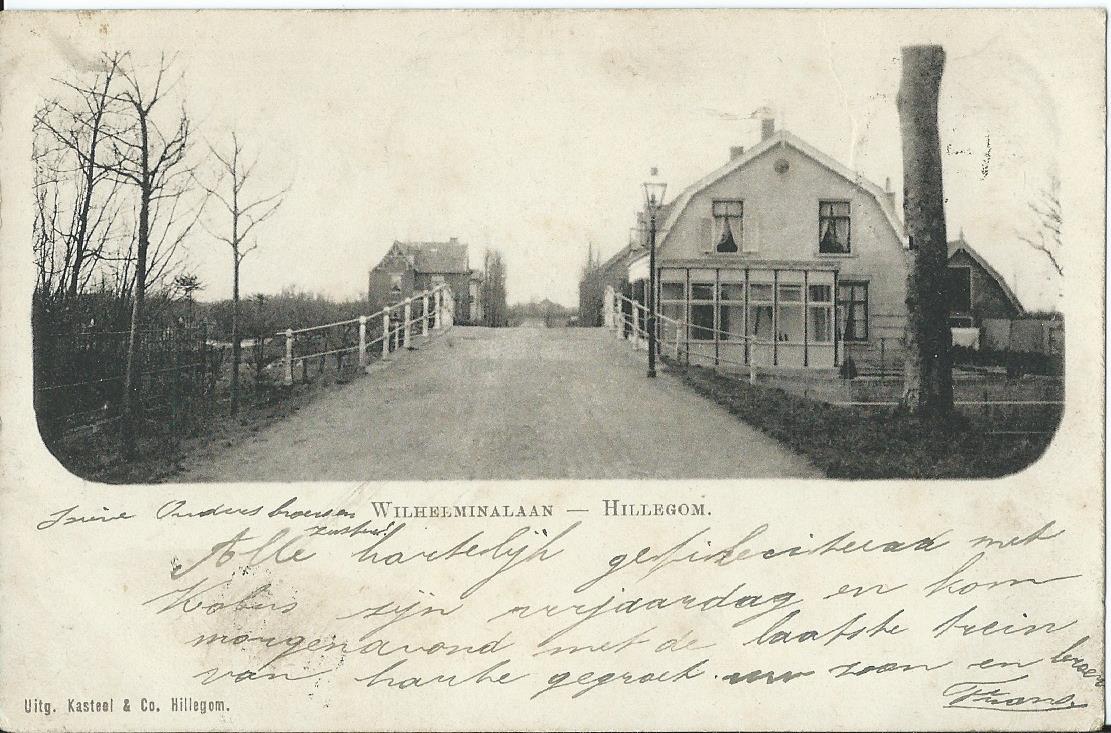 WILHELMINALAAN — HILLEGOM.
Lieve Ouders broers en
zusters!
Alle hartelijk gefeliciteerd met
Kobus zijn verjaardag en kom
morgenavond met de laatste trein
van harte gegroet uw zoon en broer
Frans
Uitg. Kasteel & Co. Hillegom.